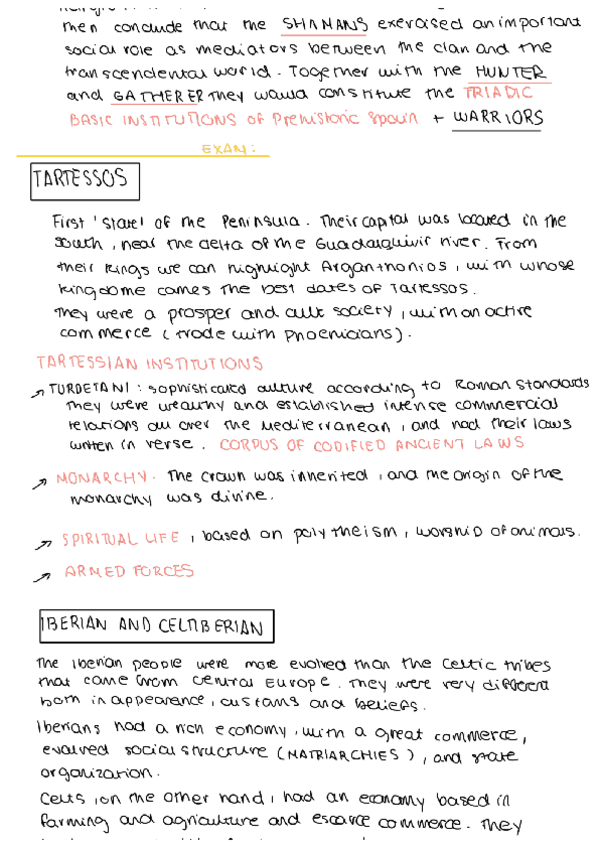 then conclude that the SHAMANS exercised an important
social role as mediators between the clan and the
transcendental world. Together with the HUNTER
and GATHERER they would constitute the TRIADIC
BASIC INSTITUTIONS OF Prehistoric Spain + WARRIORS
EXAM:
TARTESSOS
First 'state' of the Peninsula. Their capital was located in the
South, near the delta of the Guadalquivir river. From
their kings we can highlight Arganthonios, with whose
kingdome comes the best dates of Tartessos.
They were a prosper and cult society, with an active
commerce (trade with Phoenicians).
TARTESSIAN INSTITUTIONS
→ TURDETANI: sophisticated culture according to Roman standards
They were wealthy and established intense commercial
relations all over the Mediterranean, and had their laws
written in verse. CORPUS OF CODIFIED ANCIENT LAWS
→ MONARCHY. The crown was inherited, and the origin of the
monarchy was divine.
→ SPIRITUAL LIFE, based on polytheism, worship of animals.
→ ARMED FORCES
IBERIAN AND CELTIBERIAN
The Iberian people were more evolved than the Celtic tribes
that came from central Europe. They were very different
both in appearance, customs and beliefs.
Iberians had a rich economy, with a great commerce,
evolved social structure (MATRIARCHIES), and state
organization.
Celts, on the other hand, had an economy based in
farming and agriculture and escarce commerce. They